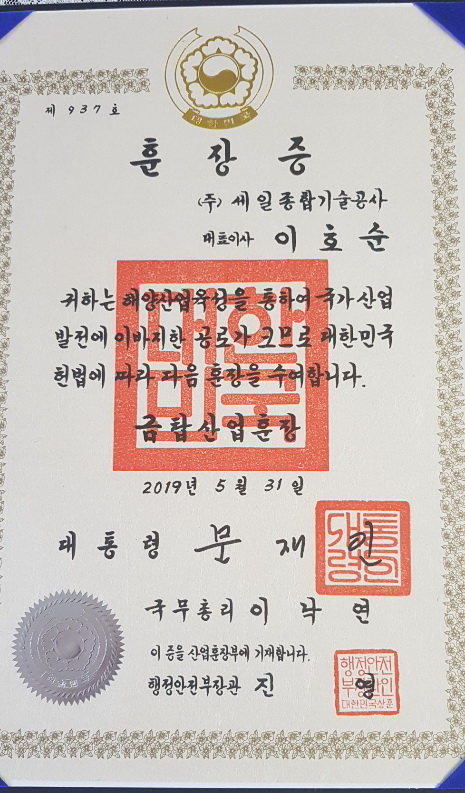 대한민국
제 937 호
훈 장 증
(주) 세일종합기술공사
대표이사 이 호 순
귀하는 해양산업육성을 통하여 국가 산업
발전에 이바지한 공로가 크므로 대한민국
헌법에 따라 다음 훈장을 수여합니다.
금탑산업훈장
2019년 5 월 31 일
대 통 령 문 재 인
국무총리 이 낙 연
이 증을 산업훈장부에 기재합니다.
행정안전부장관 진 영
행정안전
부장관인
대한민국산훈